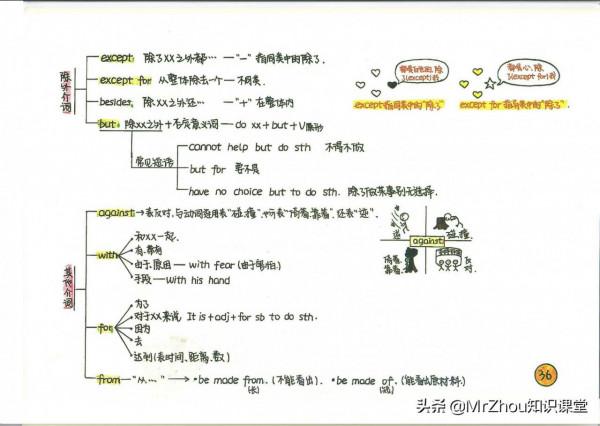 除外介词
except 除了XX之外都… — "-" 指同类中的除了.
except for 从整体除去一个 — 不同类.
besides 除XX之外还… — "+" 在整体内
but 除XX之外+否定意义词 — do xx+but+V原形
常见短语
cannot help but do sth 不得不做
but for 要不是
have no choice but to do sth. 除了做某事别无选择.
(except)我
(except for)我
except指同类中的"除了"
except for指异类中的"除了"
其他介词
against → 表反对,与动词连用表"碰,撞",也可表"倚着,靠着",还表"逆".
逆
碰,撞
against
倚着,靠着
反对.
with
和XX一起.
有,带有
由于,原因 — with fear (由于害怕)
手段 — with his hand
for
为了
对于XX来说 It is+adj+for sb to do sth.
因为
去
达到(表时间、距离、数)
from — "从…" → •be made from. (不能看出). •be made of. (能看出原材料.)
(长)
(短)
36
头条 @MrZhou知识课堂